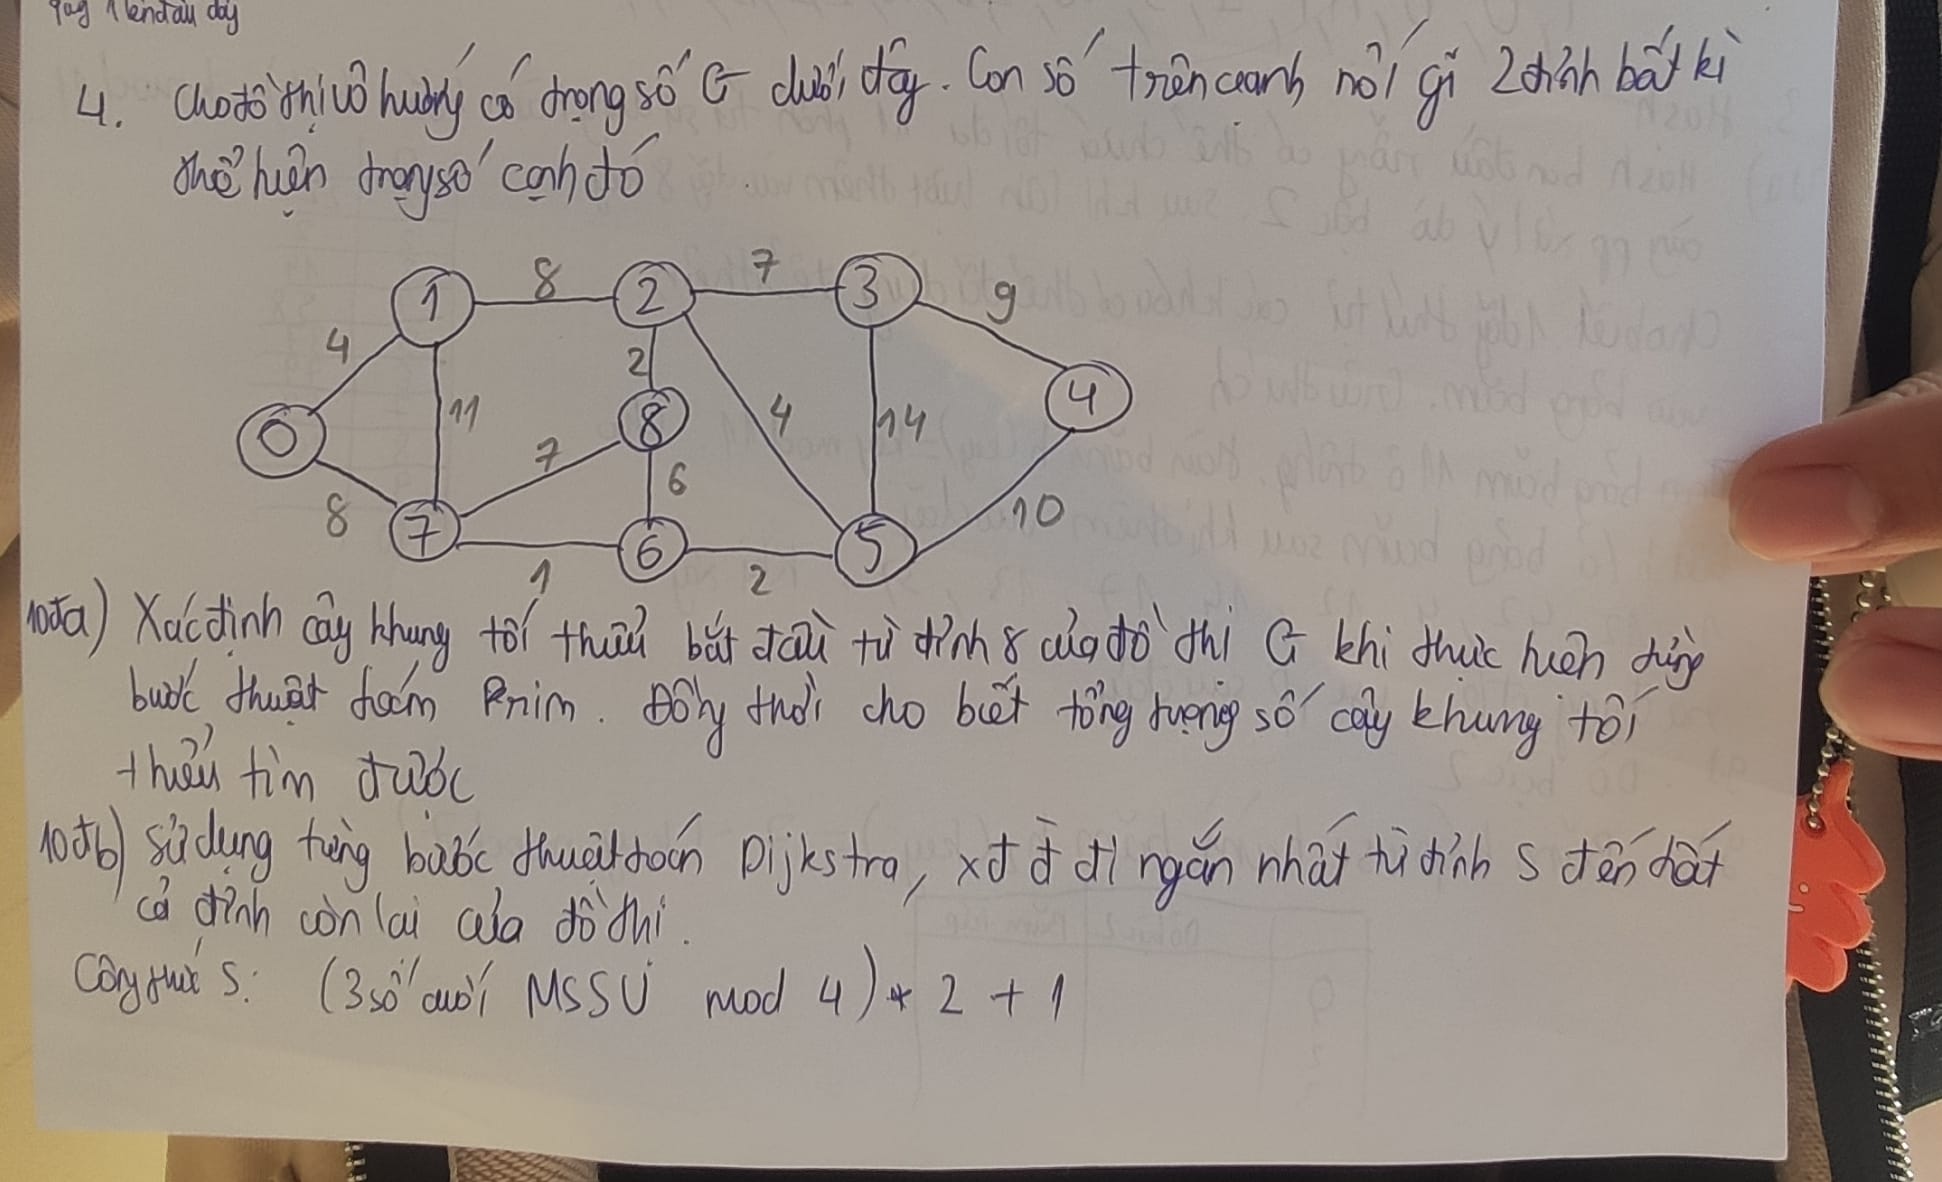 4. Cho đồ thị vô hướng có trọng số G dưới đây. Con số trên cạnh nối giữa 2 đỉnh bất kì
thể hiện trọng số cạnh đó
1 8 2 7 3 9
4 2
11 8 4 14 4
0 7
6
8 7 6 5 10
1 2
10đ a) Xác định cây khung tối thiểu bắt đầu từ đỉnh 8 của đồ thị G khi thực hiện từng
bước thuật toán Prim. Đồng thời cho biết tổng trọng số cây khung tối
thiểu tìm được
10đ b) Sử dụng từng bước thuật toán Dijkstra, xđ đ đi ngắn nhất từ đỉnh S đến tất
cả đỉnh còn lại của đồ thị.
Công thức S: (3 số cuối MSSV mod 4) * 2 + 1